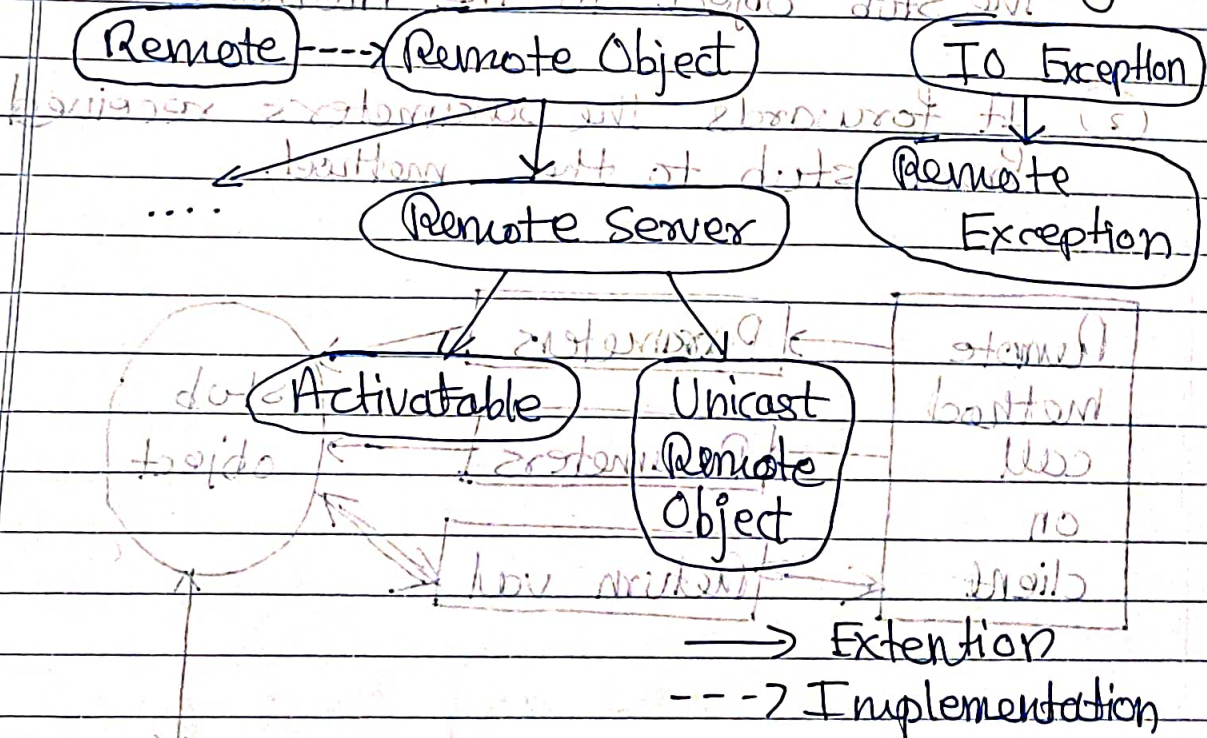 Remote ----> Remote Object
IO Exception
Remote
Exception
....
Remote Server
Activatable
Unicast
Remote
Object
⟶ Extention
---> Implementation